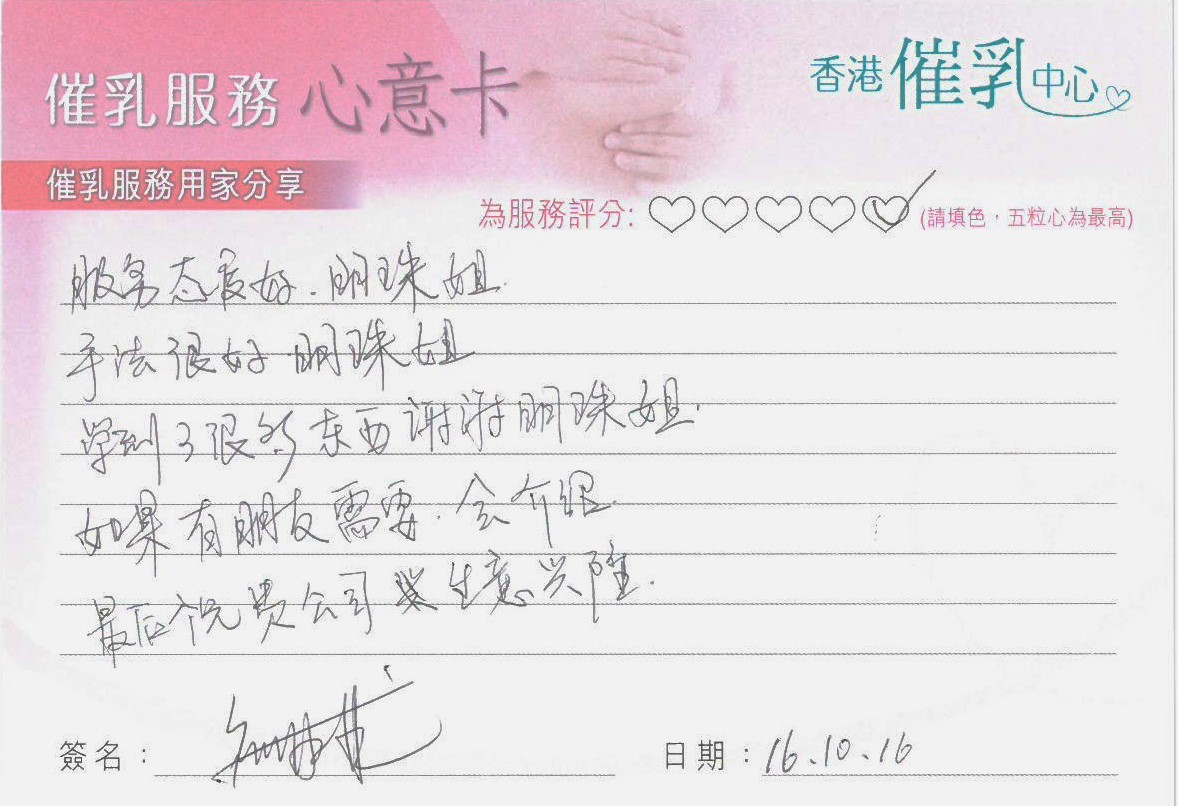 催乳服務 心意卡
香港催乳中心
催乳服務用家分享
為服務評分: (請填色，五粒心為最高)
服务态度好.明珠姐.
手法很好 明珠姐
学到了很多东西谢谢明珠姐.
如果有朋友需要.会介绍.
最后祝贵公司 生意兴隆.
簽名：
日期：16.10.16